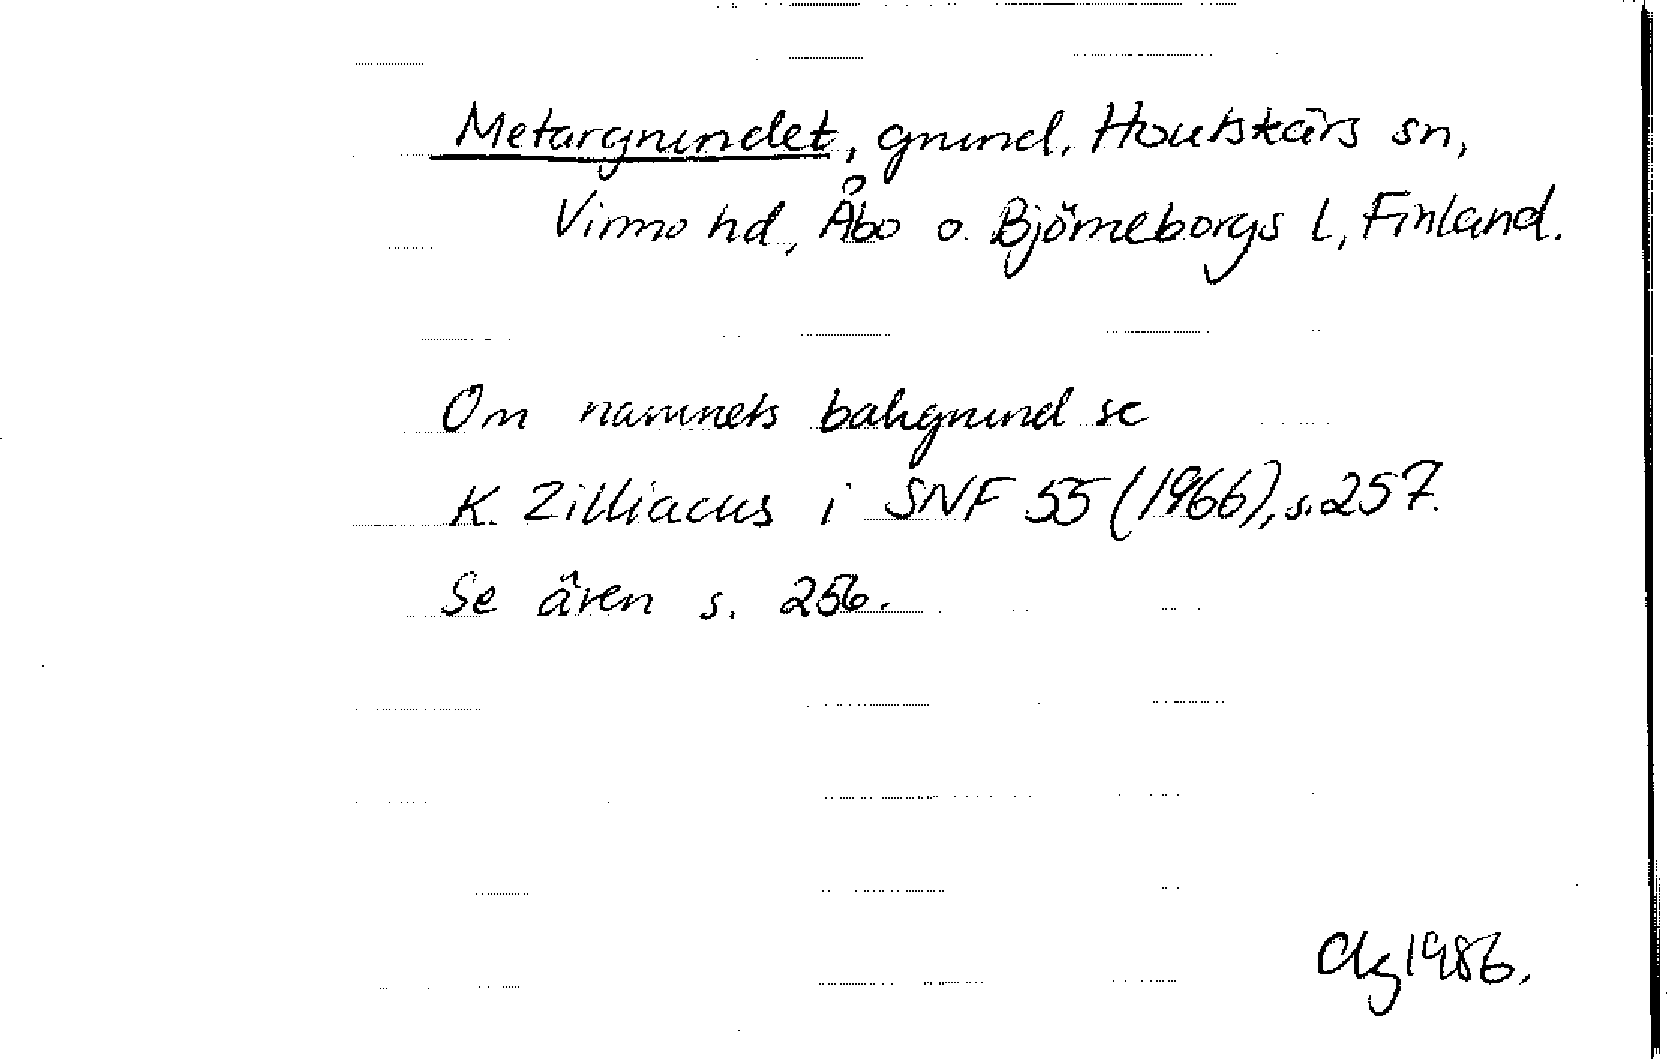 Metargrundet, grund, Houtskärs sn,
Virmo hd, Åbo o. Björneborgs l, Finland.
Om namnets bakgrund se
K. Zilliacus i SNF 55 (1966), s. 257.
Se även s. 256.
1986.